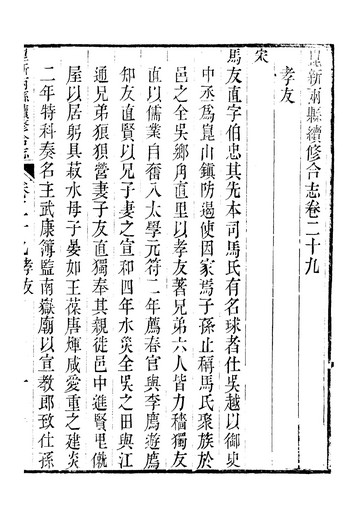 昆新兩縣續修合志卷二十九
孝友
宋
馬友直字伯忠其先本司馬氏有名球者仕吳越以御史
中丞爲崑山鎮防遏使因家焉子孫止稱馬氏聚族於
邑之全吳鄉角直里以孝友著兄弟六人皆力穡獨友
直以儒業自奮入太學元符二年薦春官與李膺遊膺
知友直賢以兄子妻之宣和四年水災全吳之田與江
通兄弟狼狽營妻子友直獨奉其親徙邑中進賢里僦
屋以居躬具菽水母子晏如王葆唐煇咸愛重之建炎
二年特科奏名主武康簿監南嶽廟以宣教郎致仕孫
昆新兩縣續修合志
卷二十九孝友
一